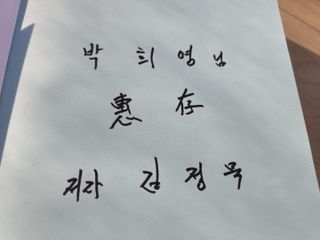 박 희 영 님
惠 存
저자 김 정 묵